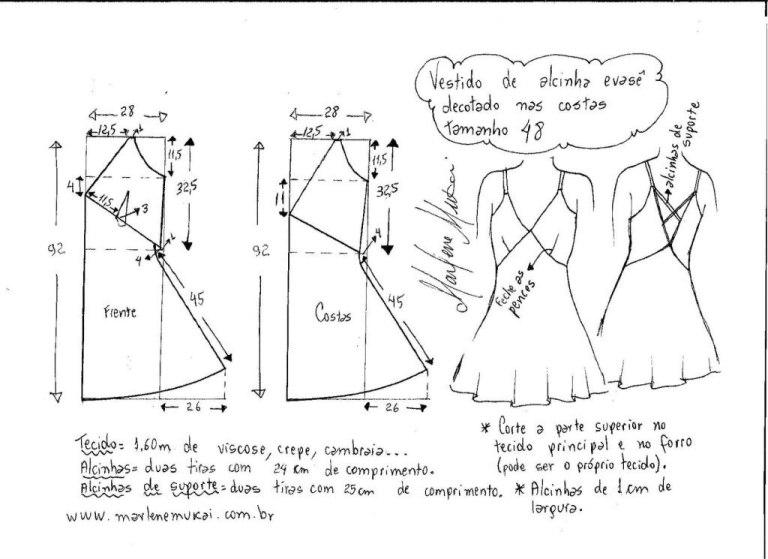 Vestido de alcinha evasê
decotado nas costas
tamanho 48
28
12,5
1
11,5
32,5
4
11,5
3
1
4
92
45
Frente
26
28
12,5
1
11,5
32,5
11
4
92
45
Costas
26
Marlene Mukai
Feche as
pences
alcinhas de
suporte
Tecido= 1,60m de viscose, crepe, cambraia...
Alcinhas= duas tiras com 24 cm de comprimento.
Alcinhas de suporte= duas tiras com 25cm de comprimento.
www.marlenemukai.com.br
* Corte a parte superior no
tecido principal e no forro
(pode ser o próprio tecido).
* Alcinhas de 1 cm de
largura.